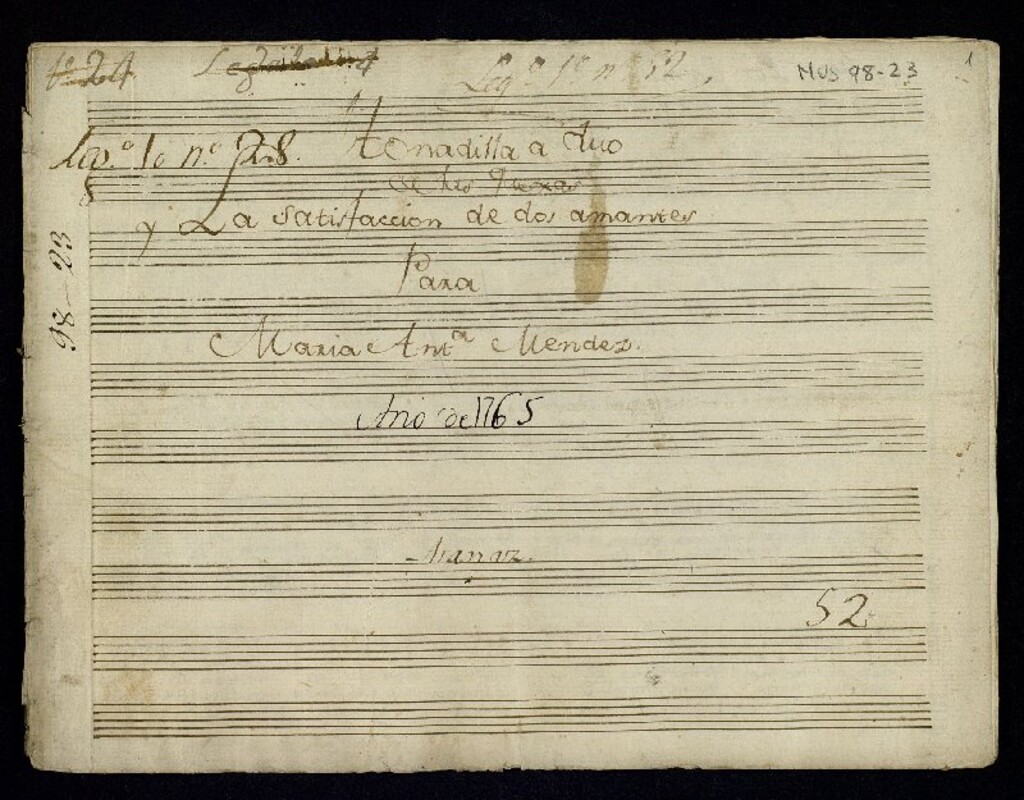 1º 24
Leg.º 1º nº 52.
MUS 98-23
1
Leg.º 1º nº 28.
Tonadilla a duo
8
de las Quexas
y La satisfaccion de dos amantes
98-23
Para
Maria Ant.ª Mendez.
Año de 1765
52